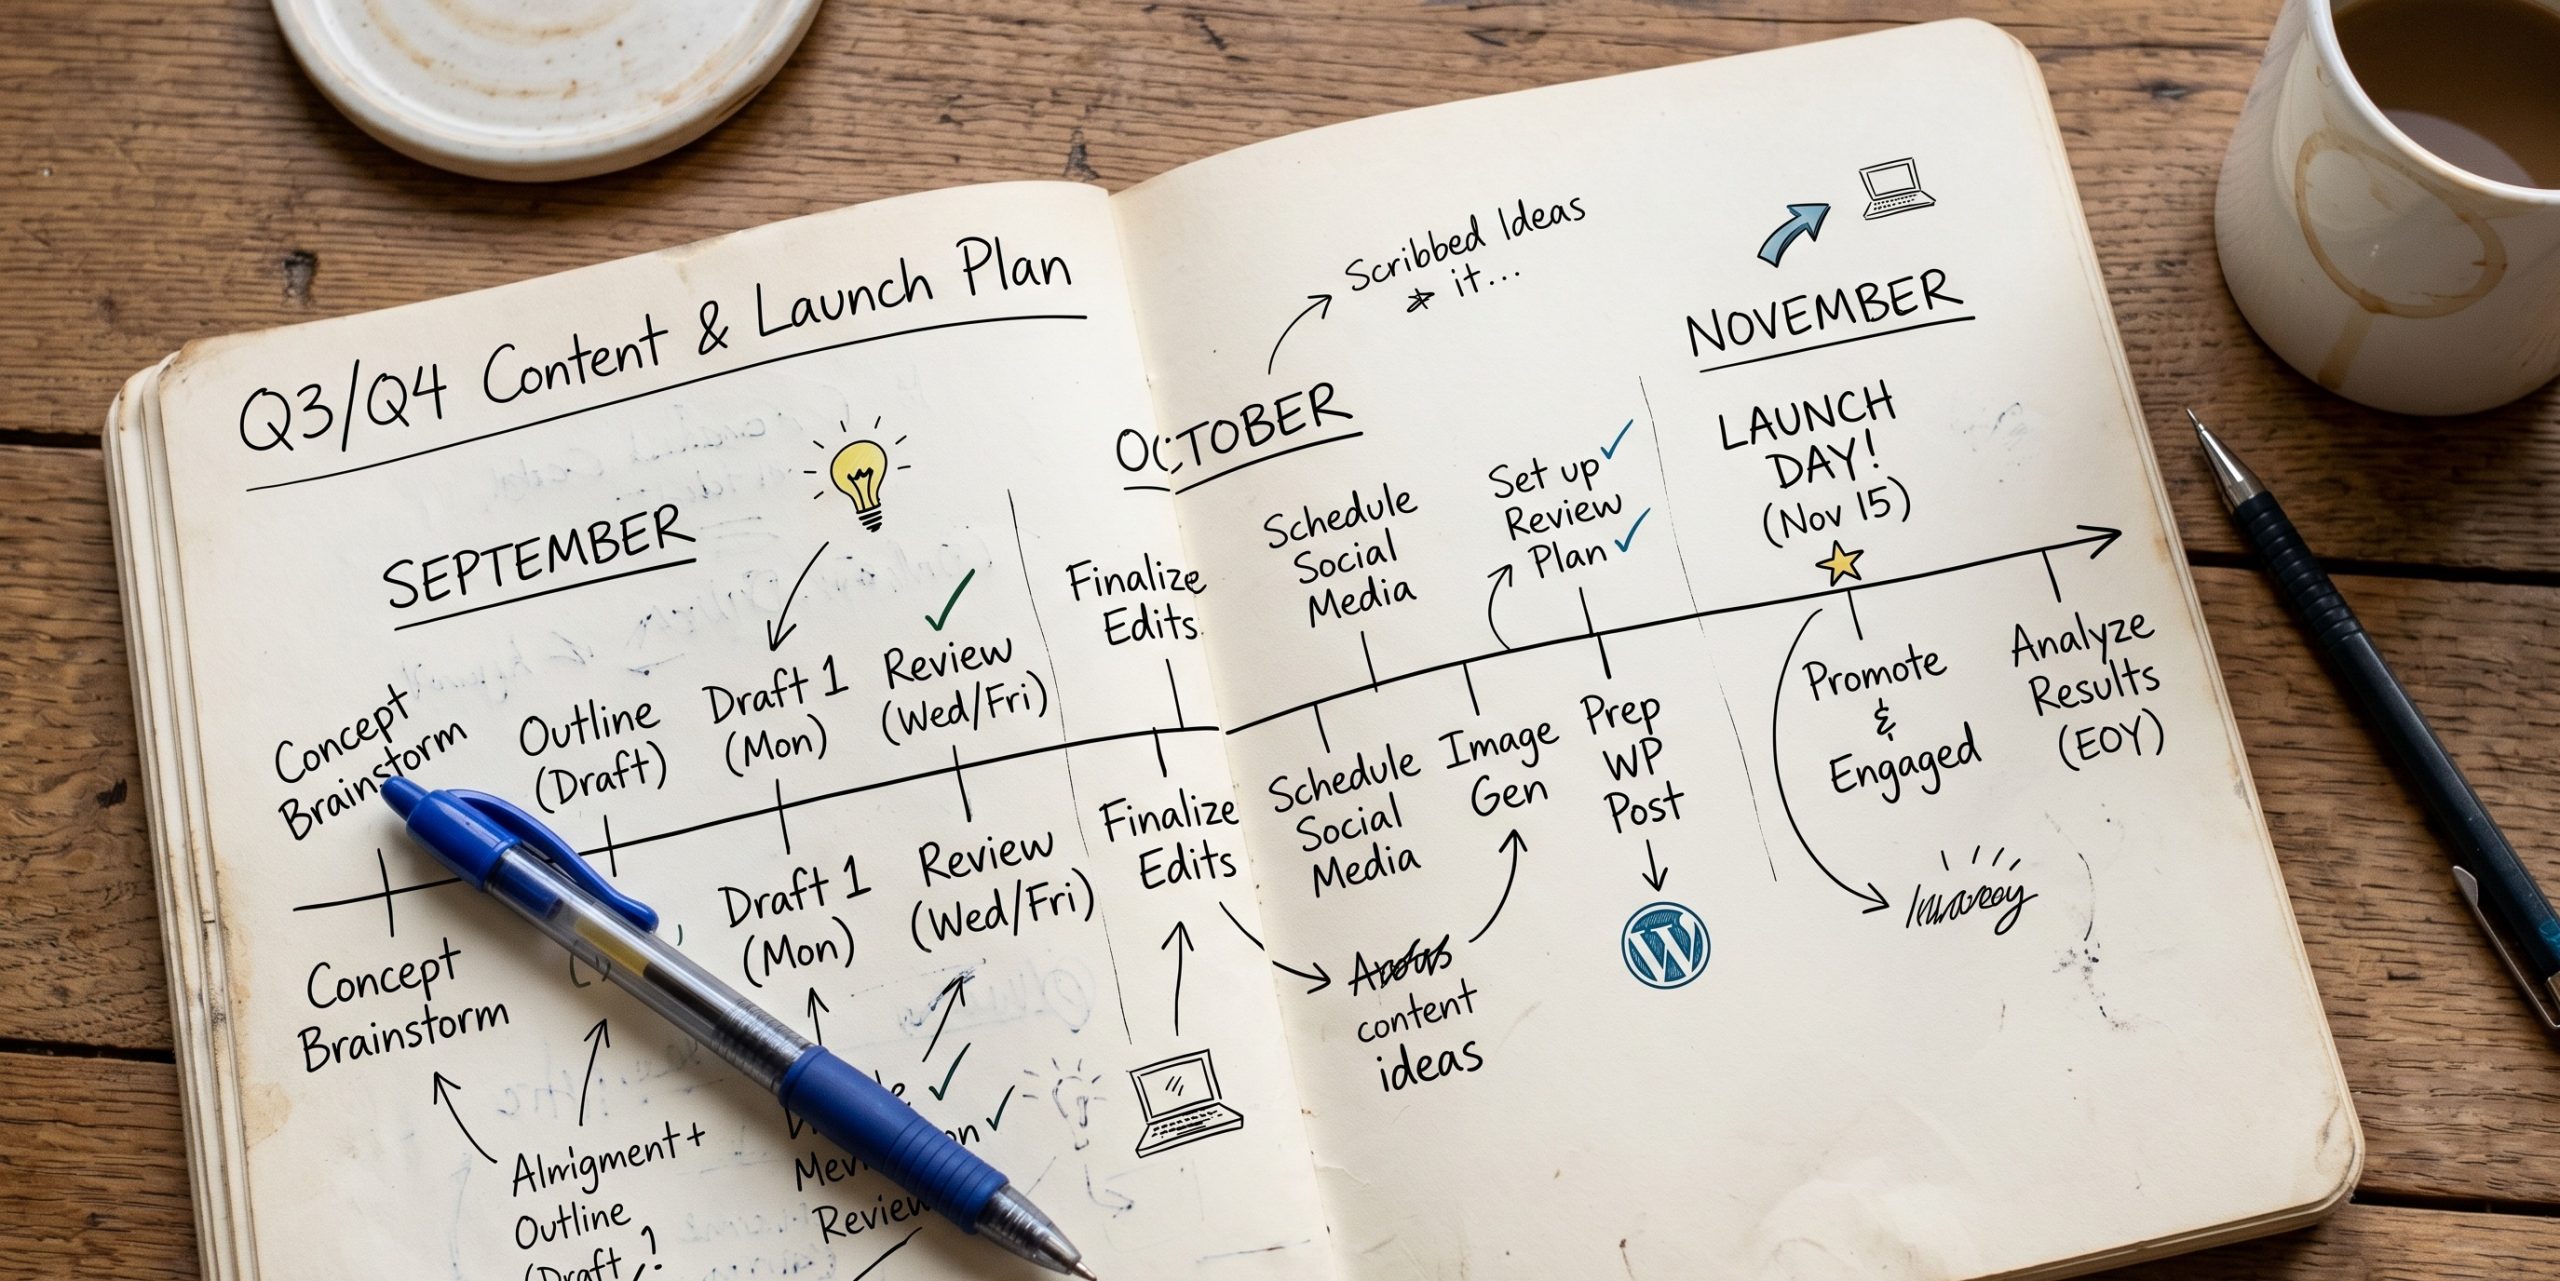 Q3/Q4 Content & Launch Plan
SEPTEMBER
Concept
Brainstorm
Outline
(Draft)
Draft 1
(Mon)
Review
(Wed/Fri)
Finalize
Edits
Concept
Brainstorm
Draft 1
(Mon)
Review
(Wed/Fri)
Finalize
Edits
Alnrigment +
Outline
(Draft
Review
OCTOBER
Scribbed Ideas
it...
Schedule
Social
Media
Set up
Review
Plan
Schedule
Social
Media
Image
Gen
Prep
WP
Post
W
content
ideas
NOVEMBER
LAUNCH
DAY!
(Nov 15)
Promote
&
Engaged
Analyze
Results
(EOY)